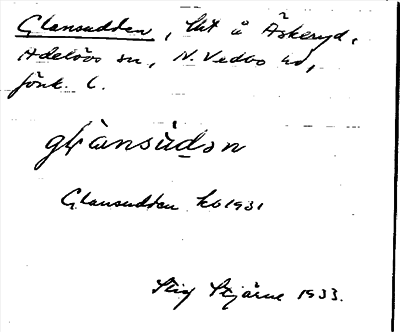 Glansudden, lht å Äskeryd,
Adelövs sn, N. Vedbo hd,
Jönk. l.
glànsùdən
Glansudden kb 1931
Stig Stjärne 1933.